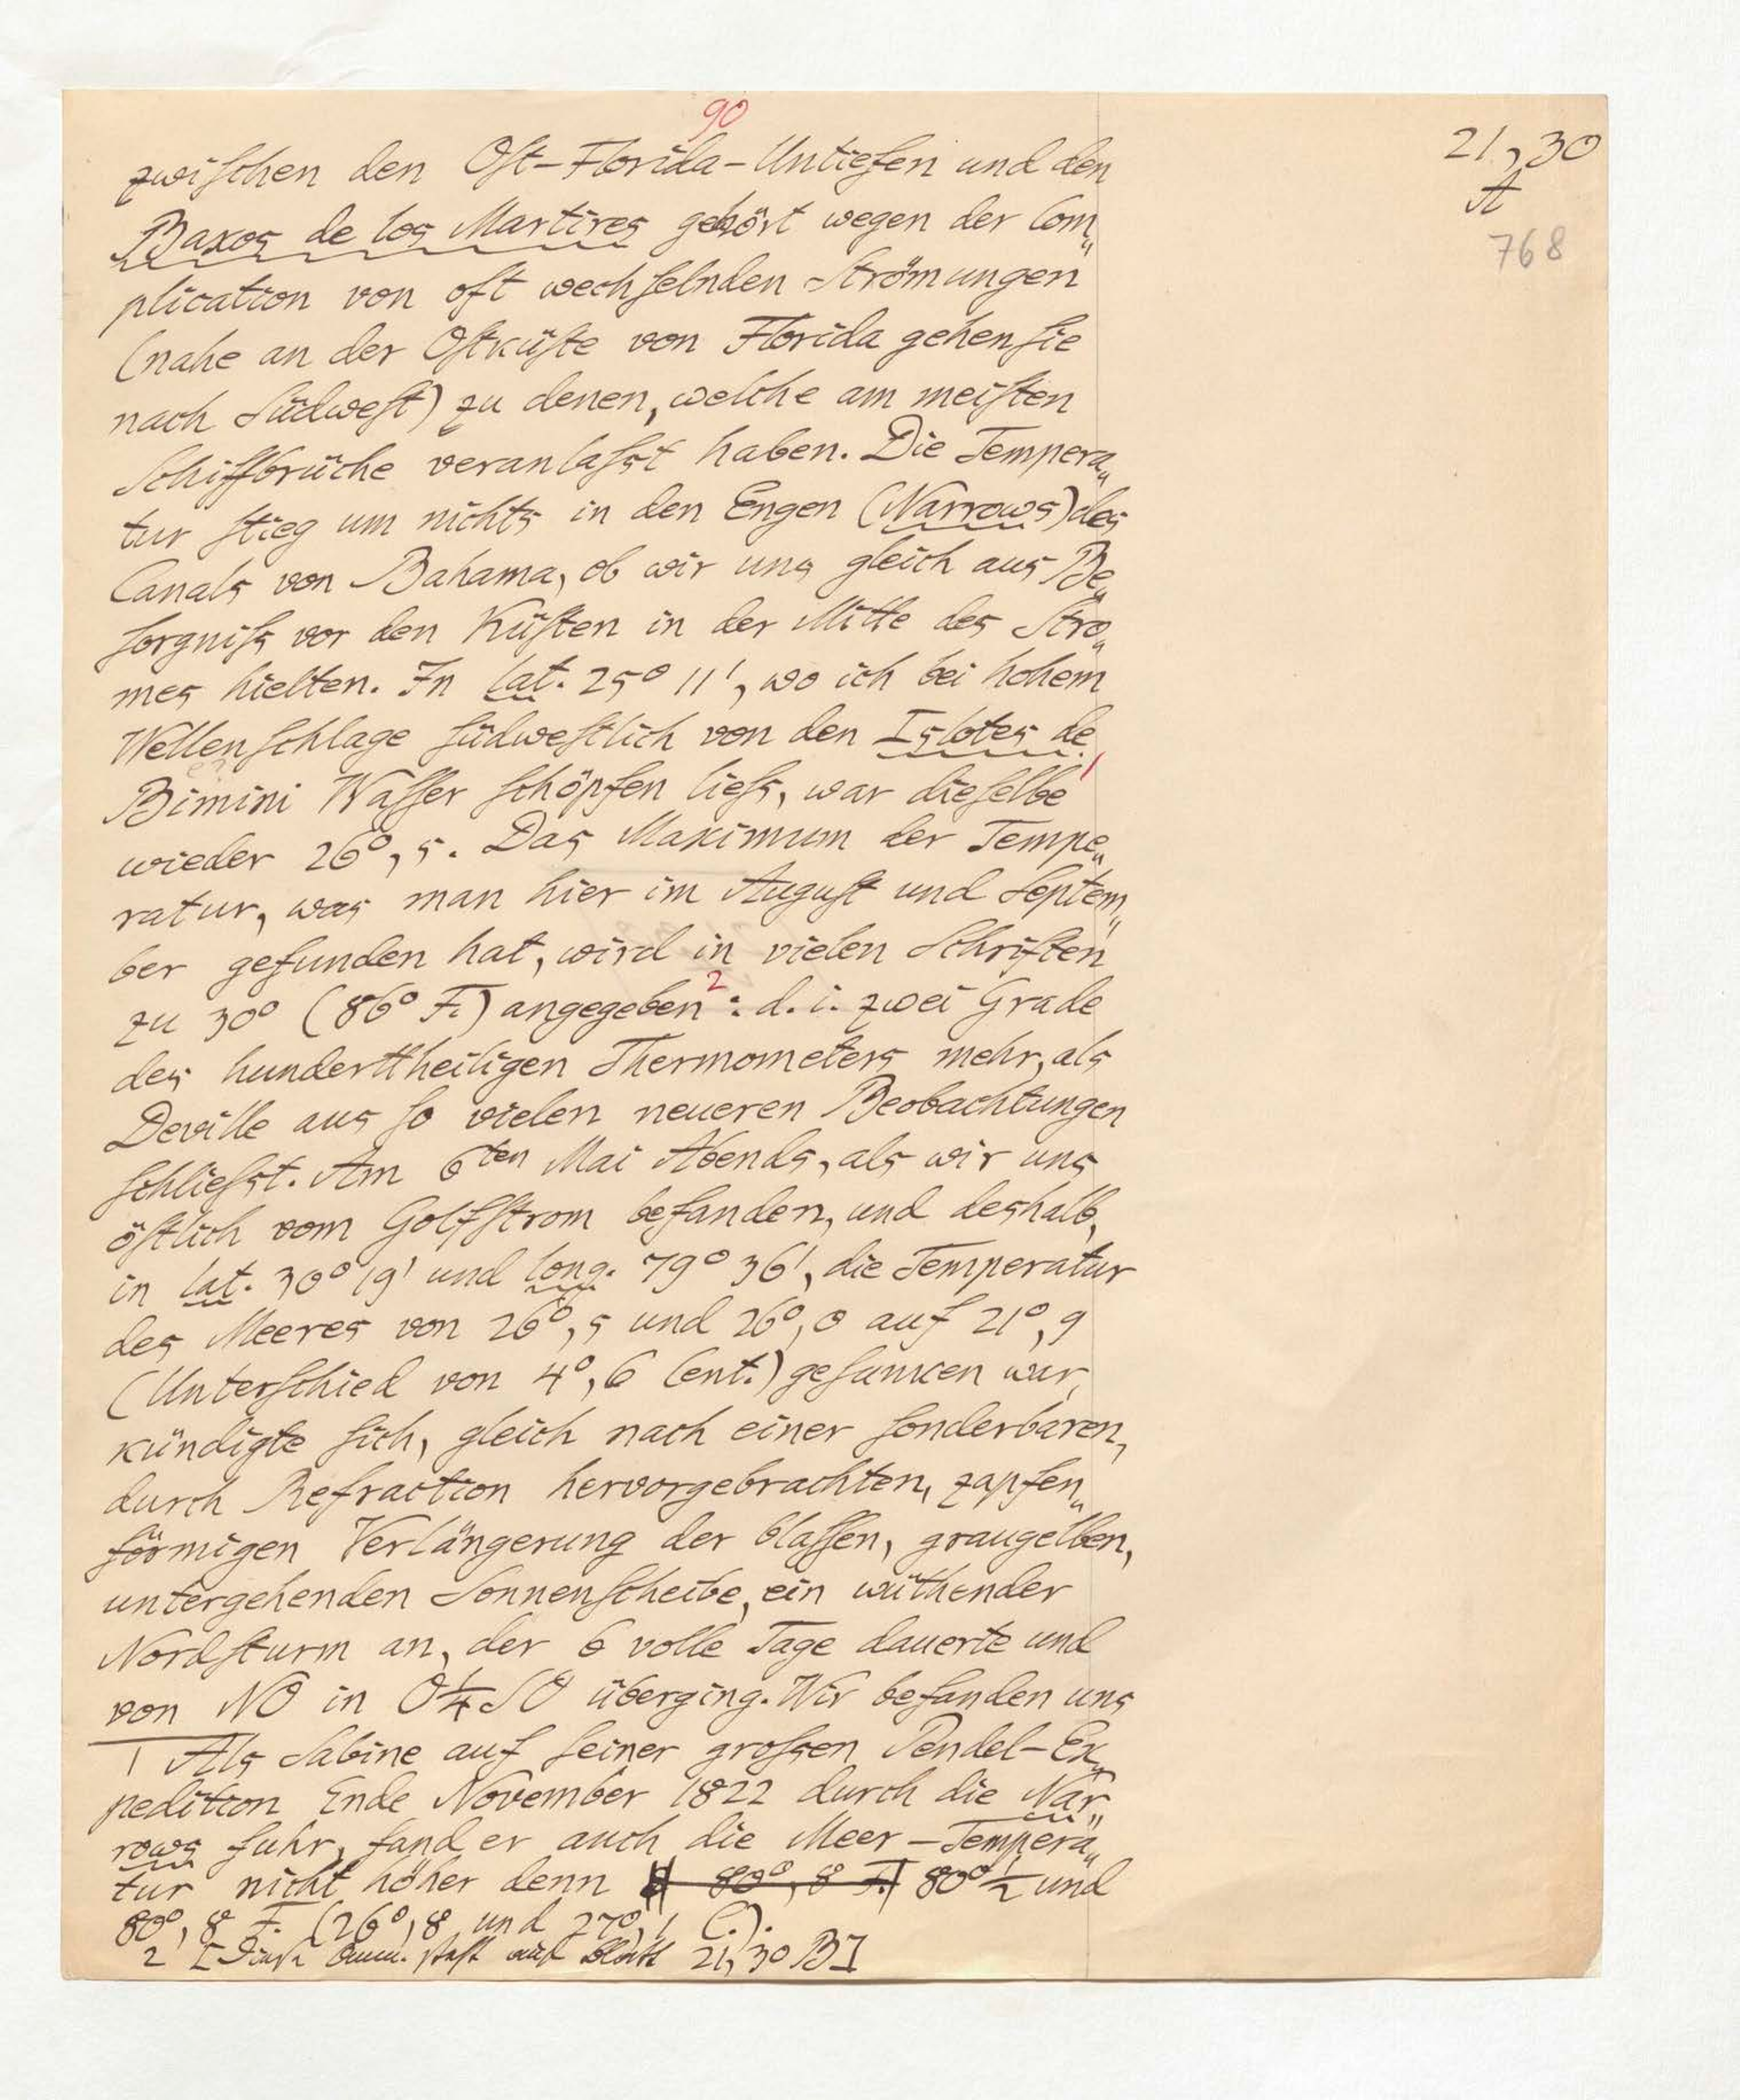 90
21,30
A
768
zwischen den Ost-Florida-Untiefen und den
Baxos de los Martires gehört wegen der Com„
plication von oft wechselnden Strömungen
(nahe an der Ostküste von Florida gehen sie
nach Südwest) zu denen, welche am meisten
Schiffbrüche veranlasst haben. Die Tempera„
tur stieg um nichts in den Engen (Narrows) des
Canals von Bahama, ob wir uns gleich aus Be„
sorgniss vor den Küsten in der Mitte des Stro„
mes hielten. In lat. 25° 11', wo ich bei hohem
Wellenschlage südwestlich von den Islotes de
Bimini Wasser schöpfen liess, war dieselbe 1
wieder 26°,5. Das Maximum der Tempe„
ratur, was man hier im August und Septem„
ber gefunden hat, wird in vielen Schriften
zu 30° (86° F.) angegeben 2: d. i. zwei Grade
des hunderttheiligen Thermometers mehr, als
Deville aus so vielen neueren Beobachtungen
schliesst. Am 6ten Mai Abends, als wir uns
östlich vom Golfstrom befanden, und deshalb,
in lat. 30° 19' und long. 79° 36', die Temperatur
des Meeres von 26°,5 und 26°,0 auf 21°,9
(Unterschied von 4°,6 Cent.) gesunken war,
kündigte sich, gleich nach einer sonderbaren,
durch Refraction hervorgebrachten, zapfen„
förmigen Verlängerung der blassen, graugelben,
untergehenden Sonnenscheibe, ein wüthender
Nordsturm an, der 6 volle Tage dauerte und
von NO in O¼SO überging. Wir befanden uns
1 Als Sabine auf seiner grossen Pendel-Ex„
pedition Ende November 1822 durch die Nar„
rows fuhr, fand er auch die Meer-Tempera„
tur nicht höher denn 80°,8 F. 80°½ und
80°,8 F. (26°,8 und 27°,1 C.).
2 [Diese Anm. steht auf Blatt 21,30 B]